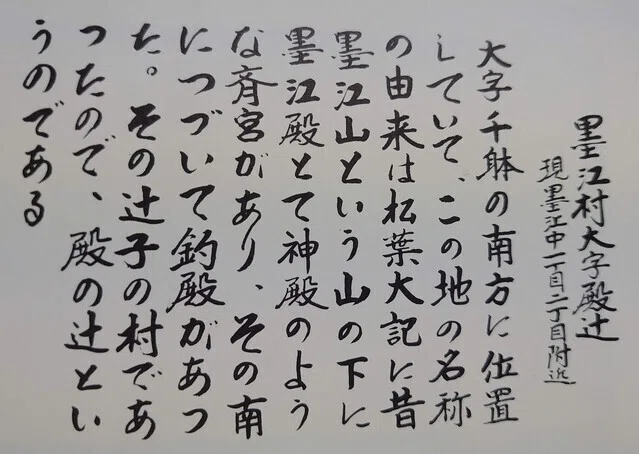 墨江村大字殿辻
現墨江中一丁目二丁目附近
大字千躰の南方に位置
していて、この地の名称
の由来は松葉大記に昔
墨江山という山の下に
墨江殿とて神殿のよう
な斉宮があり、その南
につづいて釣殿があつ
た。その辻子の村であ
つたので、殿の辻とい
うのである